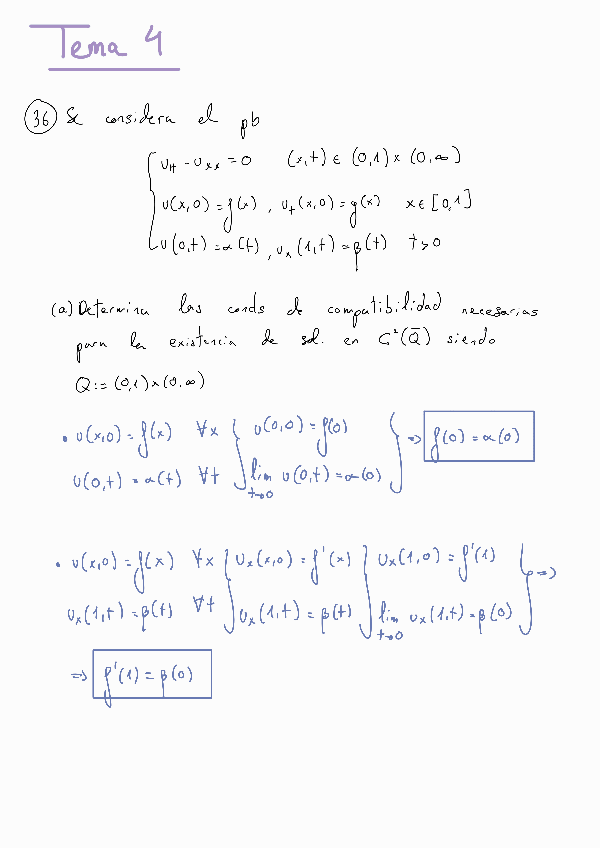 Tema 4
36 Se considera el pb
u_tt - u_xx = 0 (x,t) ∈ (0,1) × (0,∞)
u(x,0) = f(x), u_t(x,0) = g(x) x ∈ [0,1]
u(0,t) = α(t), u_x(1,t) = β(t) t>0
(a) Determina las conds de compatibilidad necesarias
para la existencia de sol. en C²(Q̄) siendo
Q := (0,1)×(0,∞)
• u(x,0) = f(x) ∀x } u(0,0) = f(0) } ⇒ f(0) = α(0)
u(0,t) = α(t) ∀t } lím_{t→0} u(0,t) = α(0)
• u(x,0) = f(x) ∀x } u_x(x,0) = f'(x) } u_x(1,0) = f'(1) } ⇒
u_x(1,t) = β(t) ∀t } u_x(1,t) = β(t) } lím_{t→0} u_x(1,t) = β(0)
⇒ f'(1) = β(0)